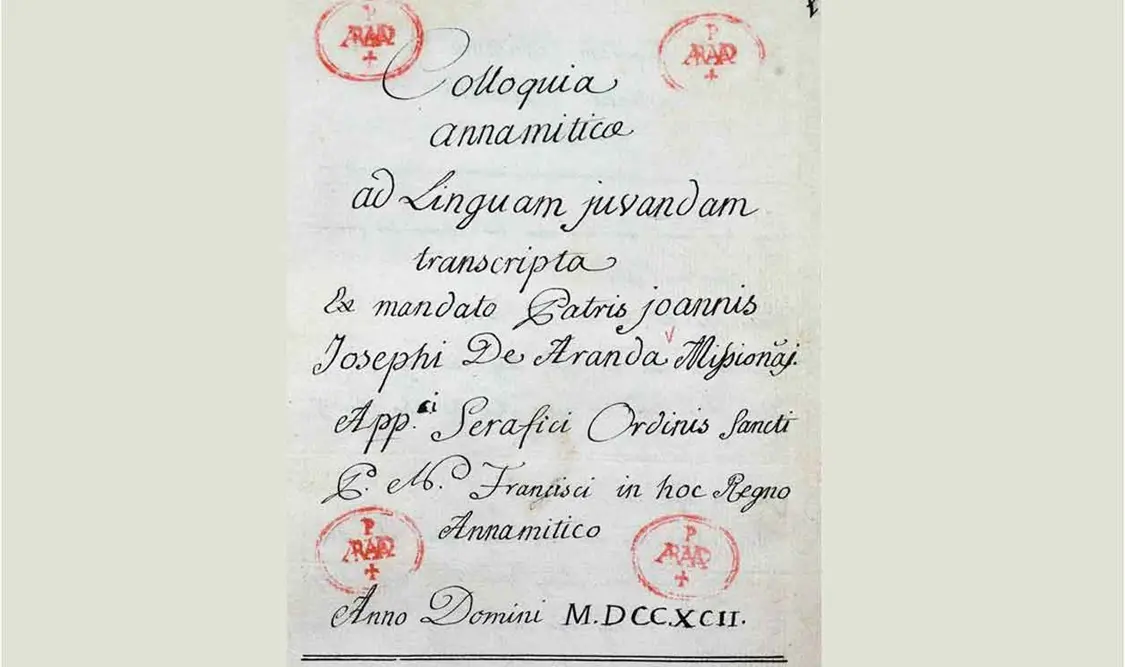 Colloquia
annamiticæ
ad Linguam juvandam
transcripta
Ex mandato Patris joannis
Josephi De Aranda Missionãj.
App.ci Serafici Ordinis Sancti
P. N. Francisci in hoc Regno
Annamitico
Anno Domini M.DCC.XCII.